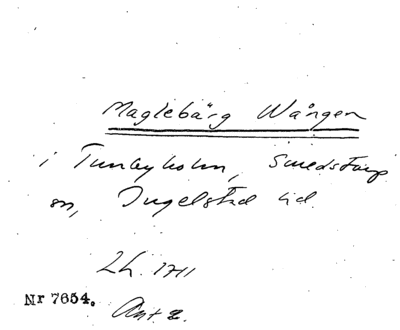 Maglebärg Wången
i Tunbyholm, Smedstorp
sn, Ingelstad hd.
Lh. 1711
Nr 7654.
Ant 2.